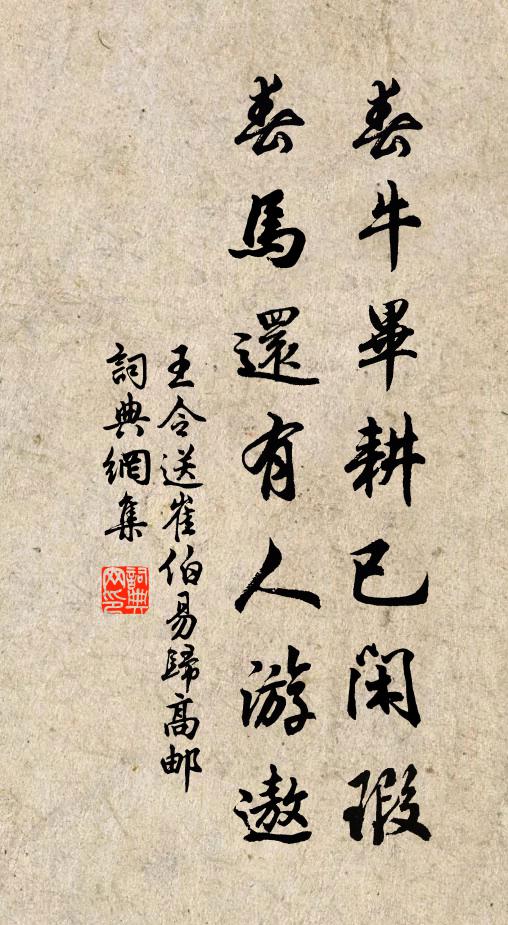 春牛畢耕已閑瑕
春馬還有人游遨
王令送崔伯易歸高邮
詞典網集
詞典網印